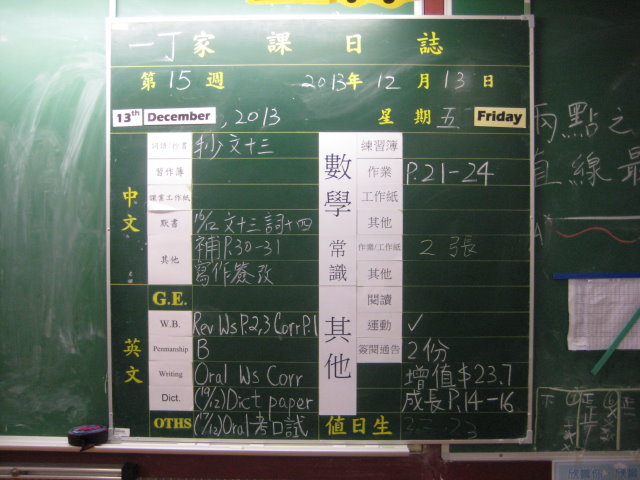 一丁家課日誌
第15週 2013年12月13日
13th December, 2013 星期五 Friday
中文
詞語/抄書 抄文十三
習作簿
課業工作紙
默書 16/12 文十三詞十四
其他 補P.30-31
寫作簽改
G.E.
英文
W.B. Rev Ws P.2,3 Corr P.1
Penmanship B
Writing Oral Ws Corr
Dict. (19/12) Dict paper
OTHS (17/12) Oral 考口試
數學
練習簿
作業 P.21-24
工作紙
其他
常識
作業/工作紙 2張
其他
其他
閱讀
運動 ✓
簽閱通告 2份
增值$23.7
成長P.14-16
值日生
兩點之
直線最
A
下